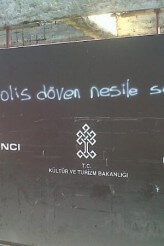 olis döven nesile s
NCI
T.C.
KÜLTÜR VE TURİZM BAKANLIĞI